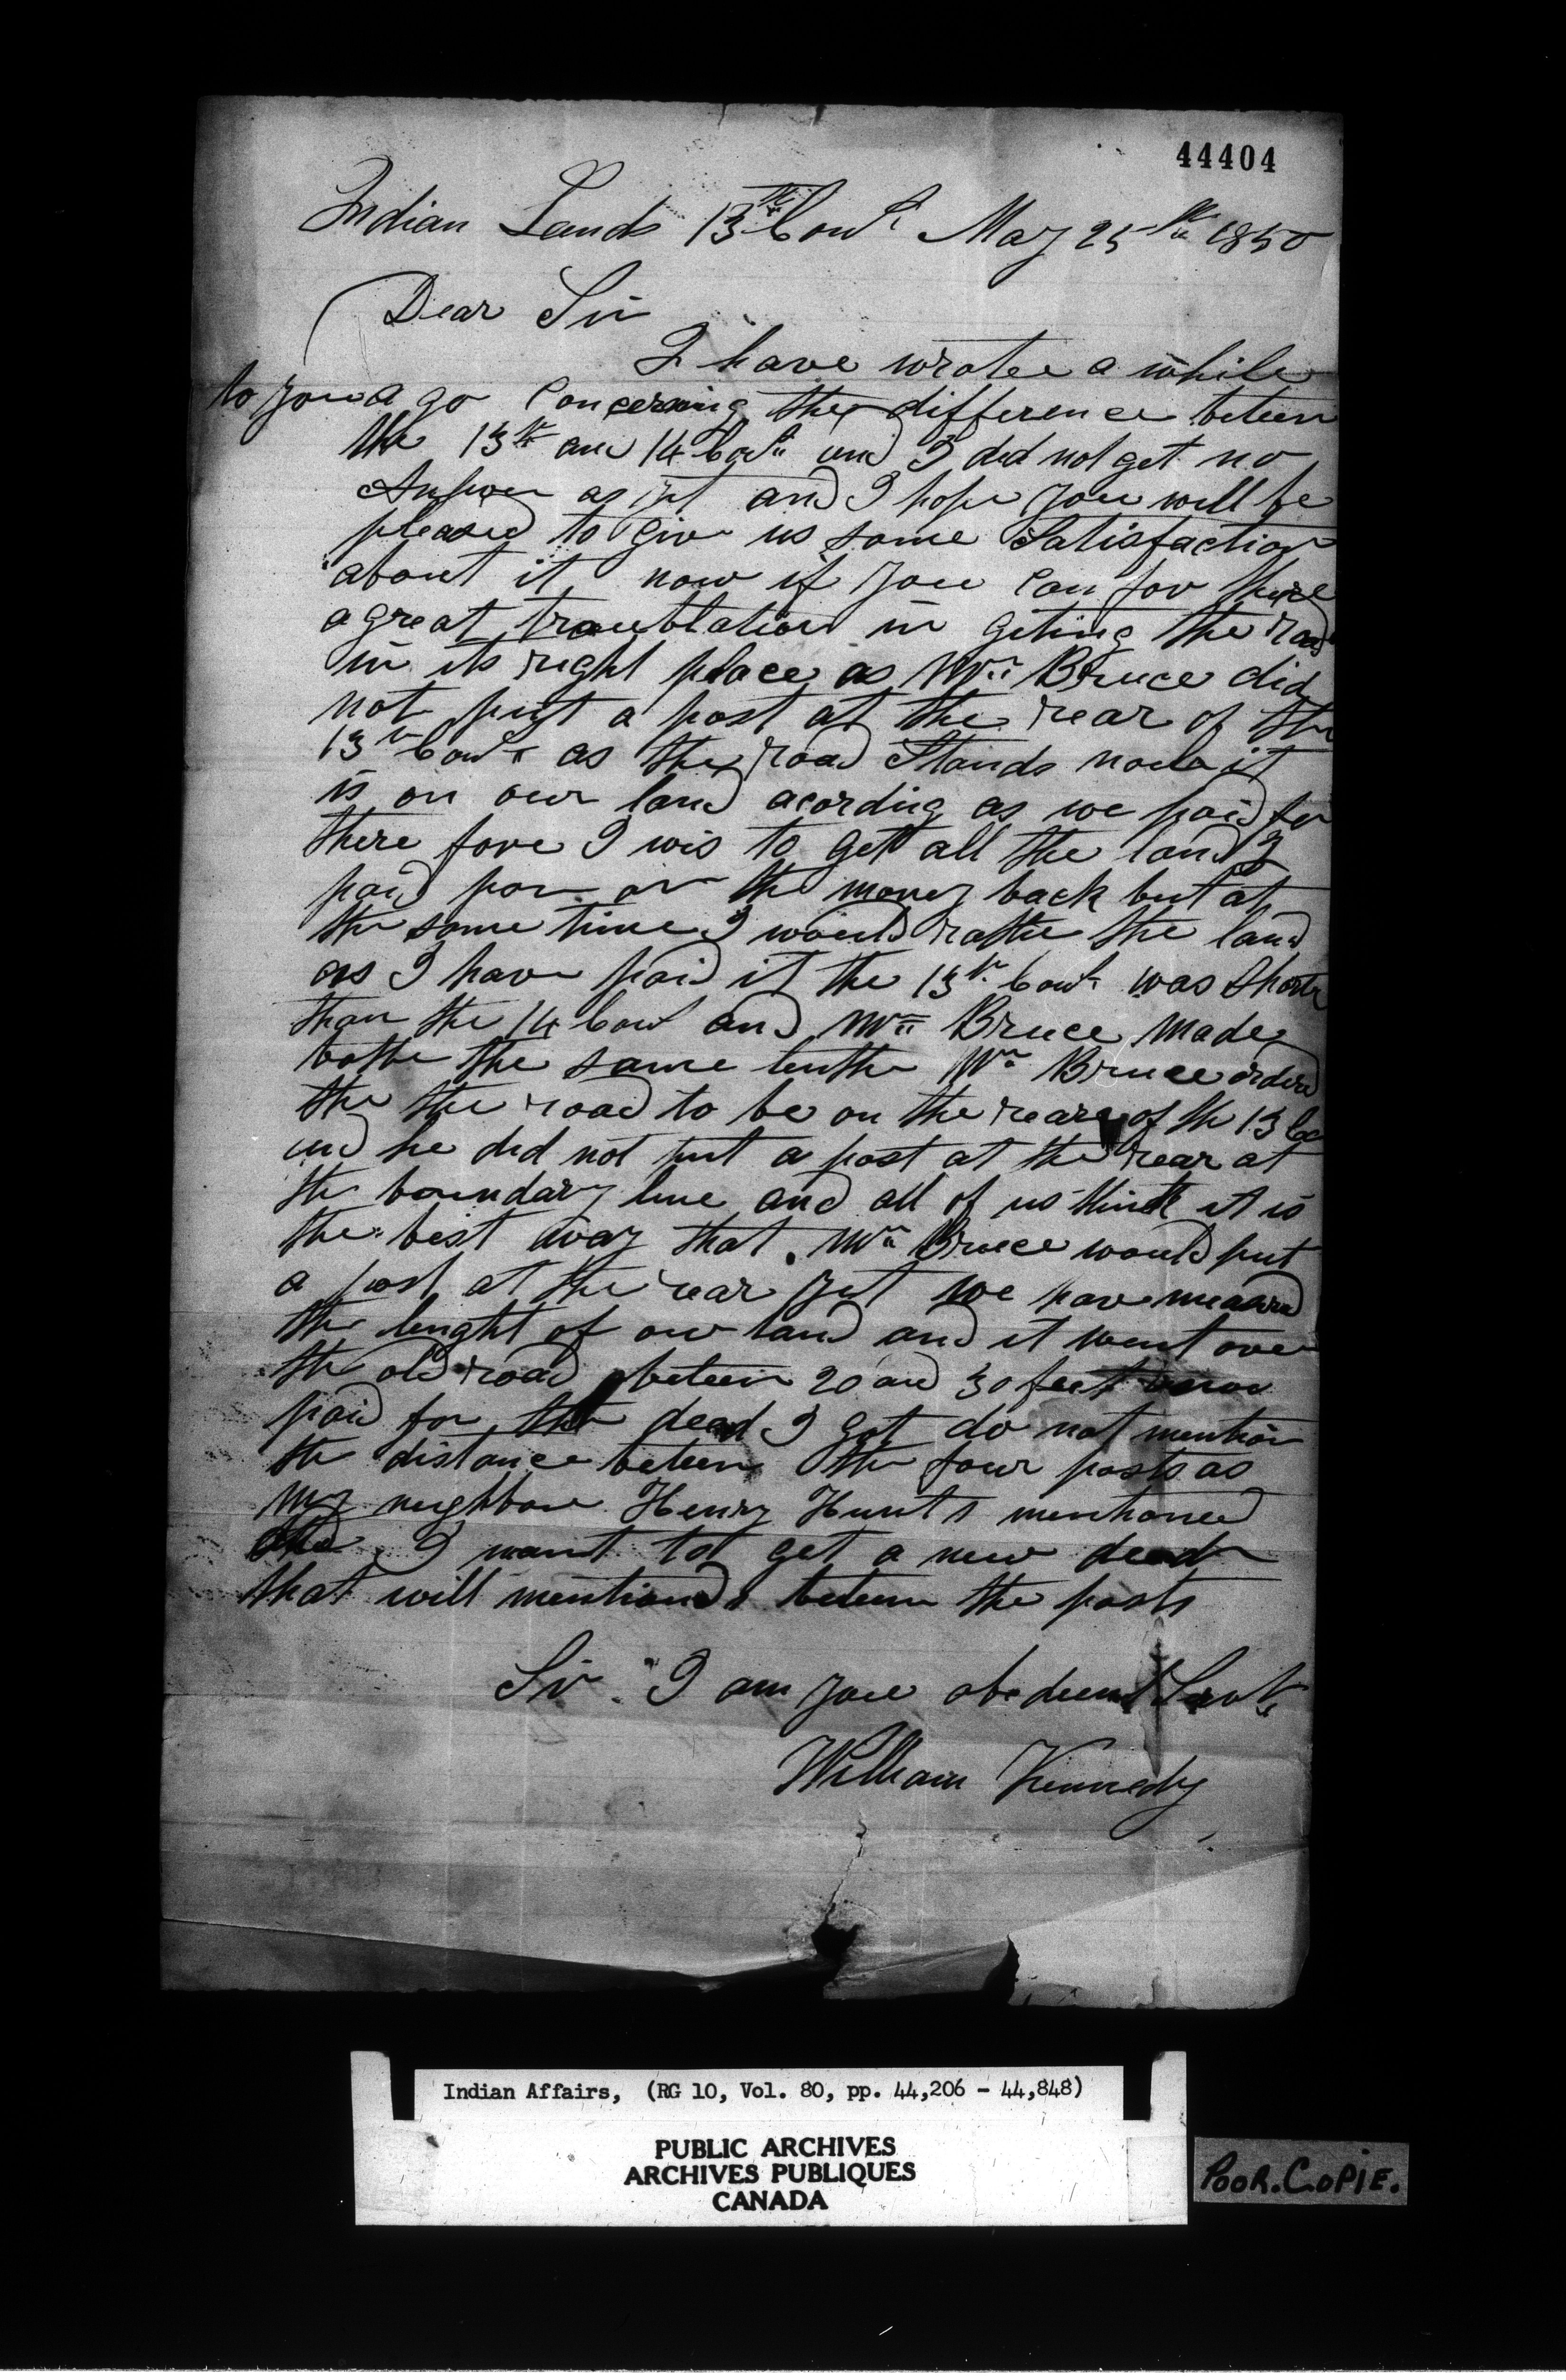 44404
Indian Lands 13th Cont May 25th 1850
Dear Sir
I have wrote a while
to you a go Concerning the difference beteen
the 13th and 14 Cont and I did not get no
Answer as yet and I hope you will be
pleased to give us some Satisfaction
about it now if you Can for there
a great troublation in geting the road
in its right place as Mr Bruce did
not put a post at the rear of the
13th Cont as the road Stands now it
is on our land acording as we paid for
there fore I wis to get all the land I
paid for or the money back but at
the same time I would rathe the land
as I have paid it the 13th Cont was Shorter
than the 14 Cont and Mr Bruce made
bothe the same lenthe Mr Bruce orderd
the the road to be on the rear of the 13 Co
and he did not put a post at the rear at
the boundary line and all of us think it is
the best away that Mr Bruce would put
a post at the rear yet we have measured
the lenght of our land and it went over
the old road beteen 20 and 30 feet
paid for the dead I got do not mention
the distance beteen the four posts as
my neighbour Henry Hunts mentioned
I want to get a new deed
that will mentiond beteen the posts
Sir I am your obedient Servt
William Kennedy
Indian Affairs, (RG 10, Vol. 80, pp. 44,206 - 44,848)
PUBLIC ARCHIVES
ARCHIVES PUBLIQUES
CANADA
POOR.COPIE.